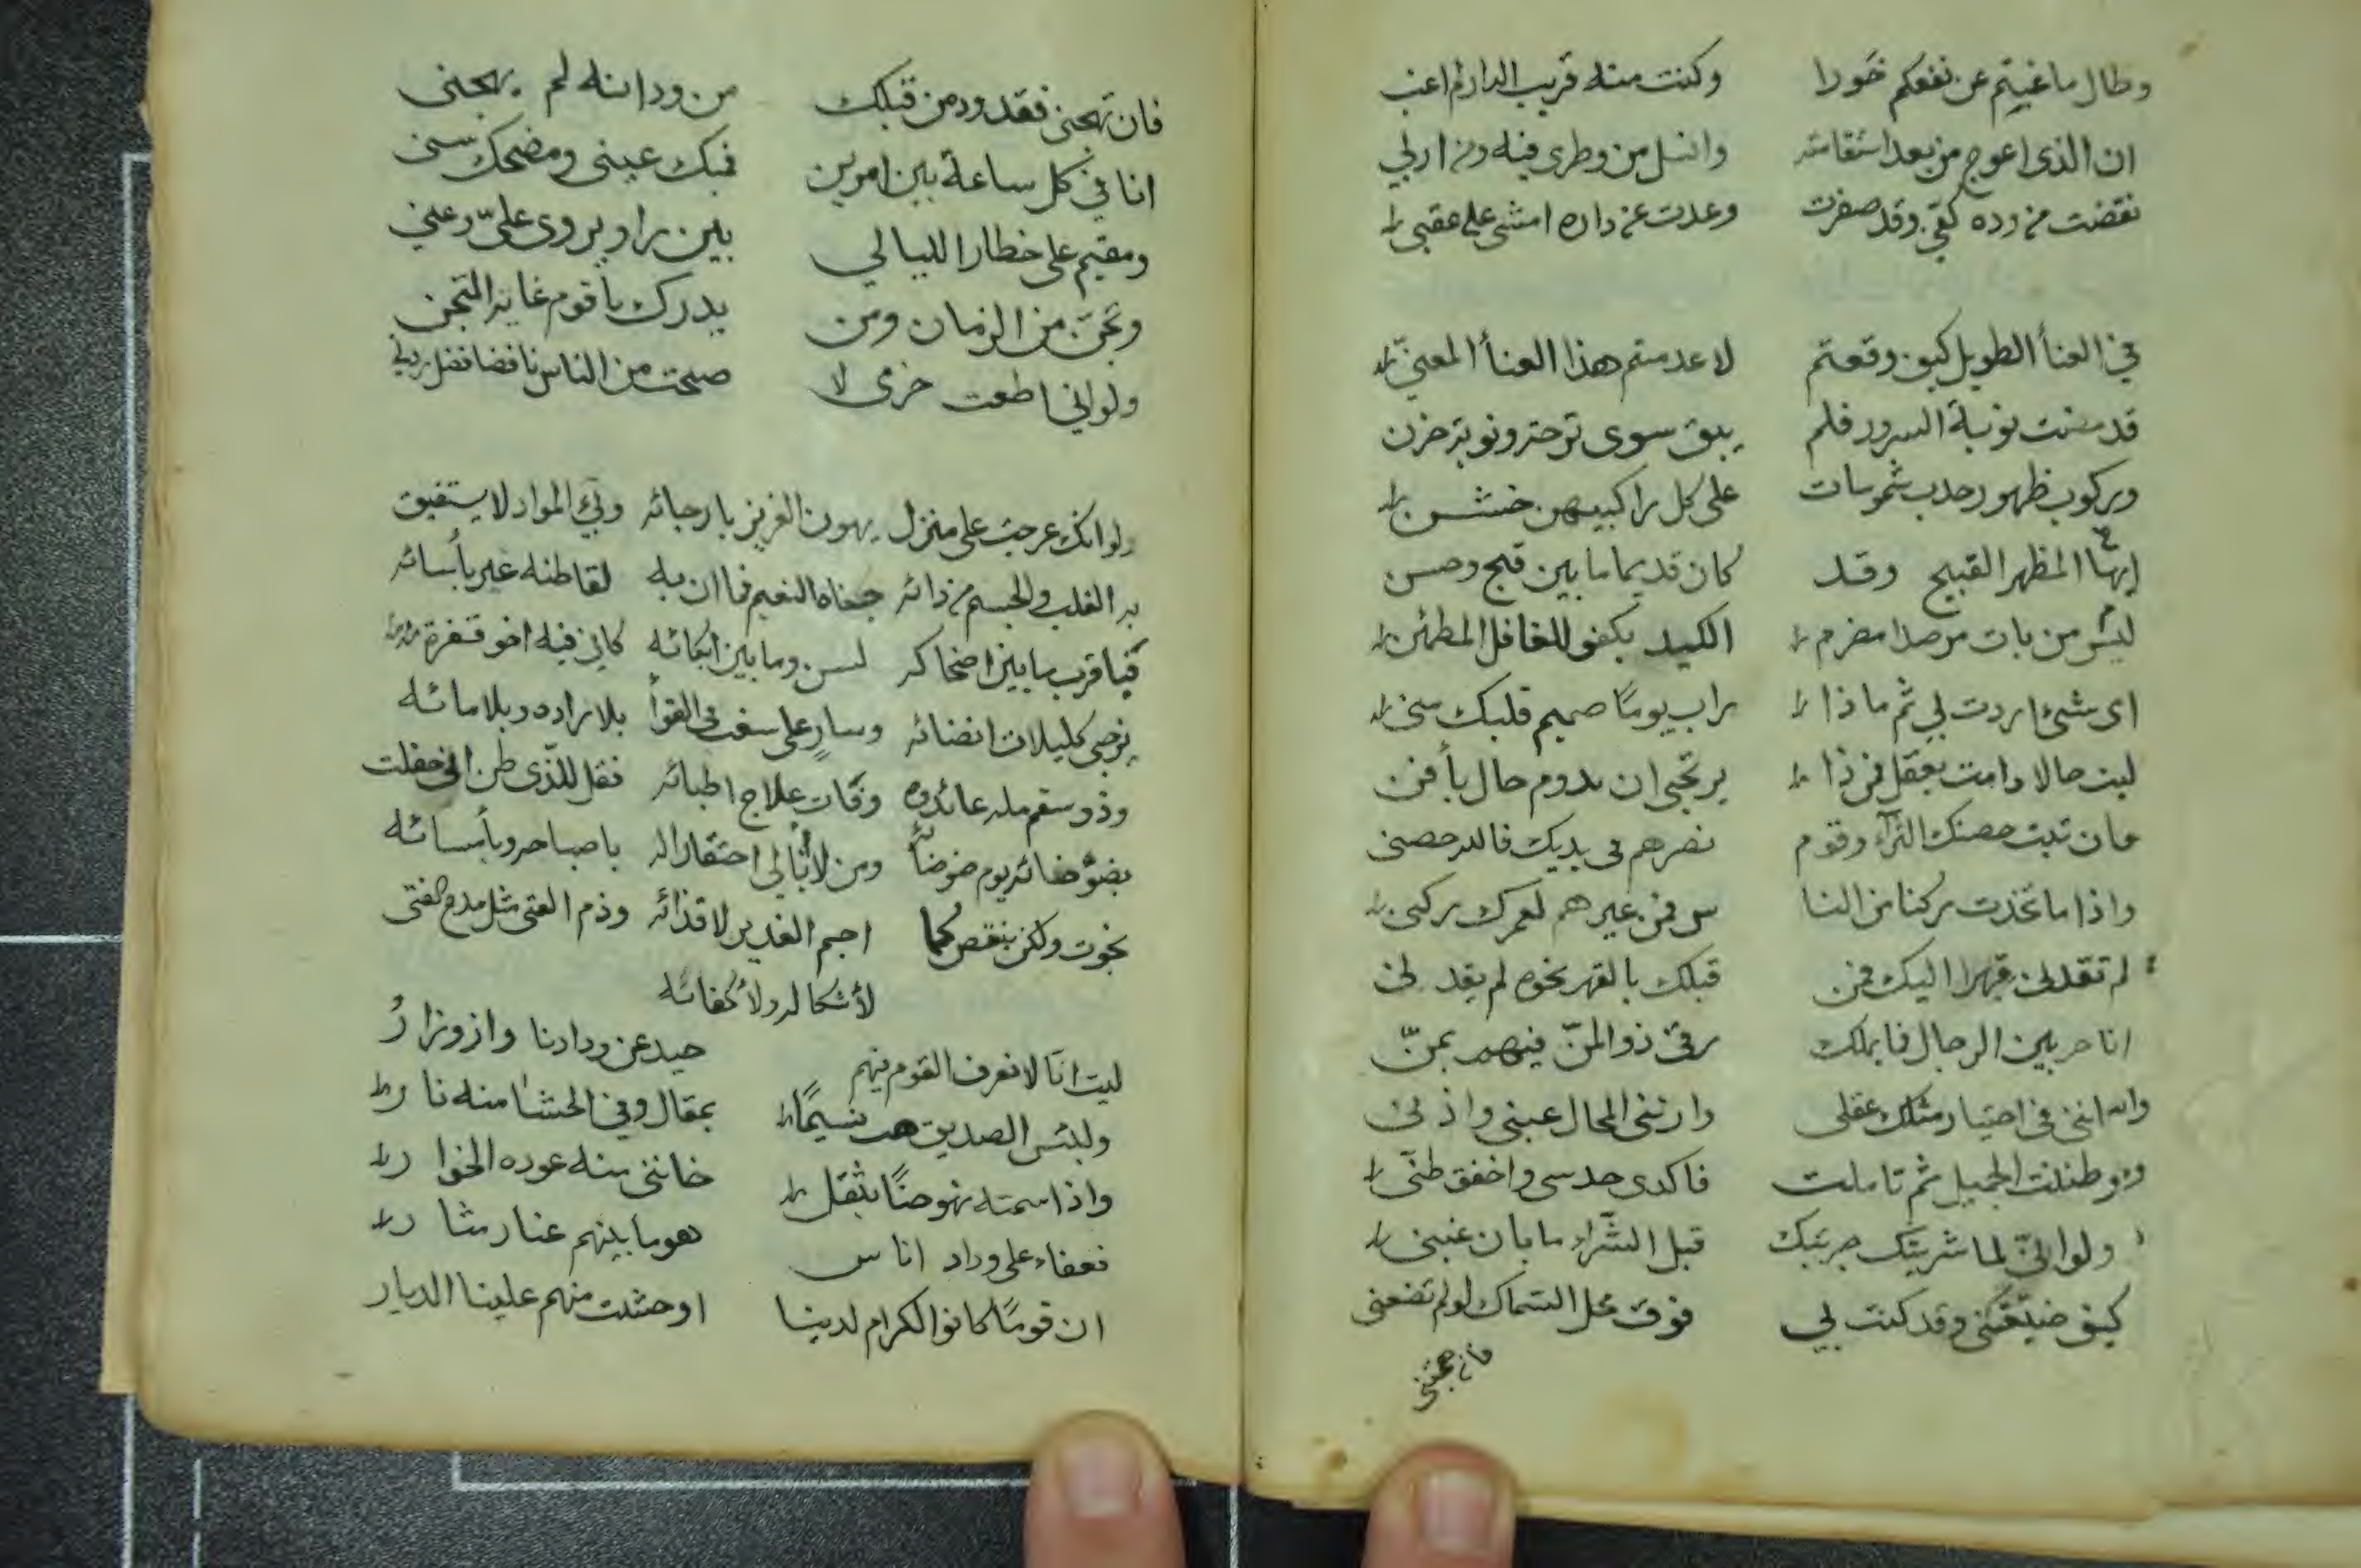 وطال ما غبتم عن نفعكم خورا وكنت منه قريب الدار لم اغب
ان الذى اعوج من بعد استقامته وانسل من وطرى فيه ومن اربي
نفضت من وده كفى وقد صفرت وعدت عن داره امشى على عقبى
في العنأ الطويل كيف وقعتم لا عدمتم هذا العنأ المعنى
قد مضت نوبة السرور فلم يبق سوى ترحة ونوبة حزن
وبركوب ظهور حدب شموسات على كل راكبيهن خشن
ايها المظهر القبيح وقد كان قديما ما بين قبح وحسن
ليس من بات مرصدا مضرم الكيد بكفو للغافل المطمئن
اى شئ اردت لي ثم ماذا راب يوما صميم قلبك منى
ليت حالا دامت بعقل فمن ذا يرتجى ان يدوم حال بأفن
وقوم نصرهم فى يديك حصنى
واذا ما تخذت ركنا من النا س فمن غيرهم لعمرك ركنى
لم تقدنى قهرا اليك فمن قبلك بالقهر نحوه لم يقدنى
انا حر بين الرجال فما يملك رقى ذو المن فيهم بمن
اننى فى اختيار مثلك عقلى وارتنى المحال عينى واذنى
وظننت الجميل ثم تاملت فاكدى حدسى واخفق ظنى
ولو انى لما شريتك جربتك قبل الشراء ما بان غبنى
كيف ضيعتنى وقد كنت لي فوق محل السماك لو لم تضعنى
فان تهجنى
فان تهجنى فقد ود من قبلك من ود انه لم يهجنى
انا في كل ساعة بين امرين فبك عينى ومضحك سنى
ومقيم على خطار الليالي بين راو يروى على وعنى
وتجن من الزمان ومن يدرك يا قوم غاية التجن
ولو اني اطعت حزمى لا صبحت من الناس نافضا فضل ردنى
ولو انك عرجت على منزل يهون العزيز بارجائه ولي المواد لا يستفيق
القلب والجسم من دائه جفاه النعيم فما ان به لقاطنه غير بأسائه
فيا قرب ما بين اضحاكه لسن وما بين ابكائه كاني فيه اخو قفرة
يزجى كليلات انضائه وسار على سغب فى القوأ بلا زاده وبلا مائه
وذو سقم مله عائدوه وفات علاج اطبائه فقل للذى ظن انى حفلت
بضوضائه يوم ضوضائه ومن لا أبالي احتقارا له باصباحه وبأمسائه
نجوت ولكن بنقص كما اجم الغدير لاقذائه وذم الفتى مثل مدح الفتى
لأشكاله ولأكفائه
ليت انا لا نعرف القوم فيهم حيد عن ودادنا وازورار
ولبئس الصديق هب نسيما بمقال وفي الحشا منه نار
واذا سمته نهوضا بثقل خاننى منه عوده الخوار
فعفاء على وداد اناس هو ما بينهم عنا رمثا ر
ان قوما كانوا الكرام لدينا اوحشت منهم علينا الديار